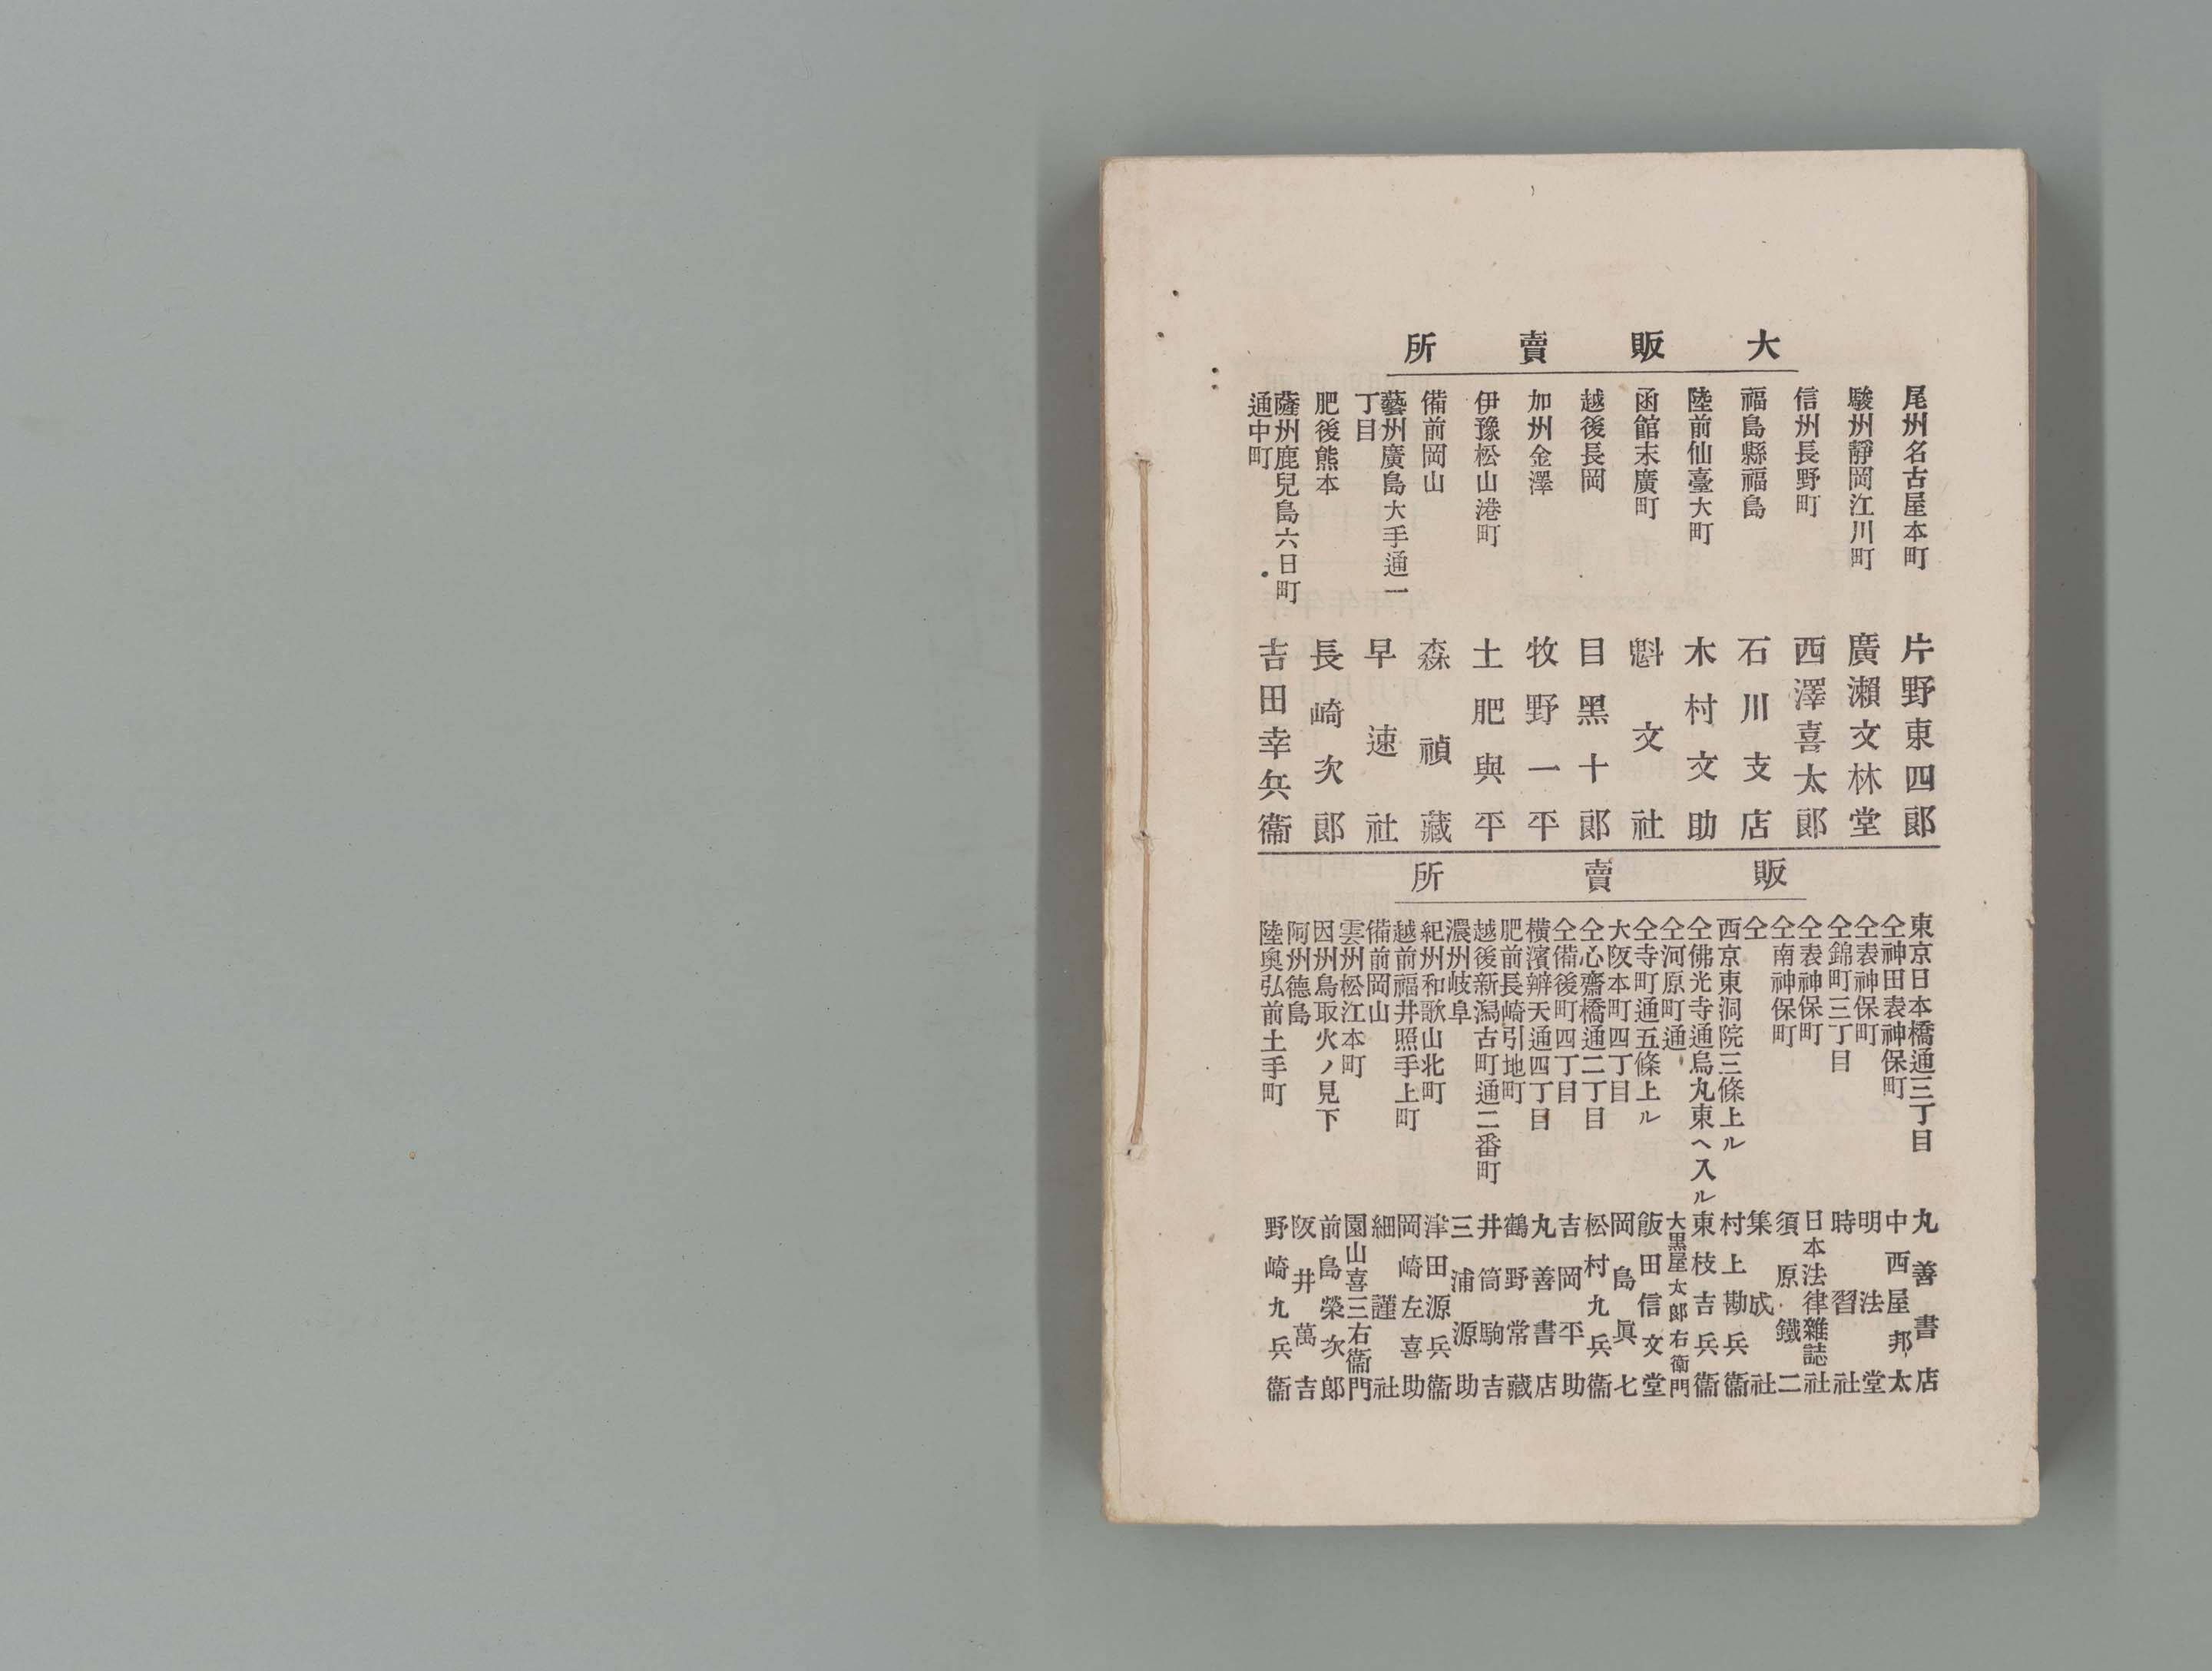 大販賣所
尾州名古屋本町 片野東四郎
駿州靜岡江川町 廣瀨文林堂
信州長野町 西澤喜太郎
福島縣福島 石川支店
陸前仙臺大町 木村文助
函館末廣町 魁文社
越後長岡 目黑十郎
加州金澤 牧野一平
伊豫松山港町 土肥與平
備前岡山 森禎藏
藝州廣島大手通一丁目 早速社
肥後熊本 長崎次郎
薩州鹿兒島六日町通中町 吉田幸兵衞
販賣所
東京日本橋通三丁目 丸善書店
仝神田表神保町 中西屋邦太
仝表神保町 明法堂
仝錦町三丁目 時習社
仝表神保町 日本法律雜誌社
仝南神保町 須原鐵二
仝 集成社
西京東洞院三條上ル 村上勘兵衞
仝佛光寺通烏丸東ヘ入ル 東枝吉兵衞
仝河原町通 大黑屋太郞右衞門
仝寺町通五條上ル 飯田信文堂
大阪本町四丁目 岡島眞七
仝心齋橋通二丁目 松村九兵衞
仝備後町四丁目 吉岡平助
橫濱辨天通四丁目 丸善書店
肥前長崎引地町 鶴野常藏
越後新潟古町通二番町 井筒駒吉
濃州岐阜 三浦源助
紀州和歌山北町 津田源兵衞
越前福井照手上町 岡崎左喜助
備前岡山 細謹社
雲州松江本町 園山喜三右衞門
因州鳥取火ノ見下 前島榮次郎
阿州德島 阪井萬吉
陸奧弘前土手町 野崎九兵衞